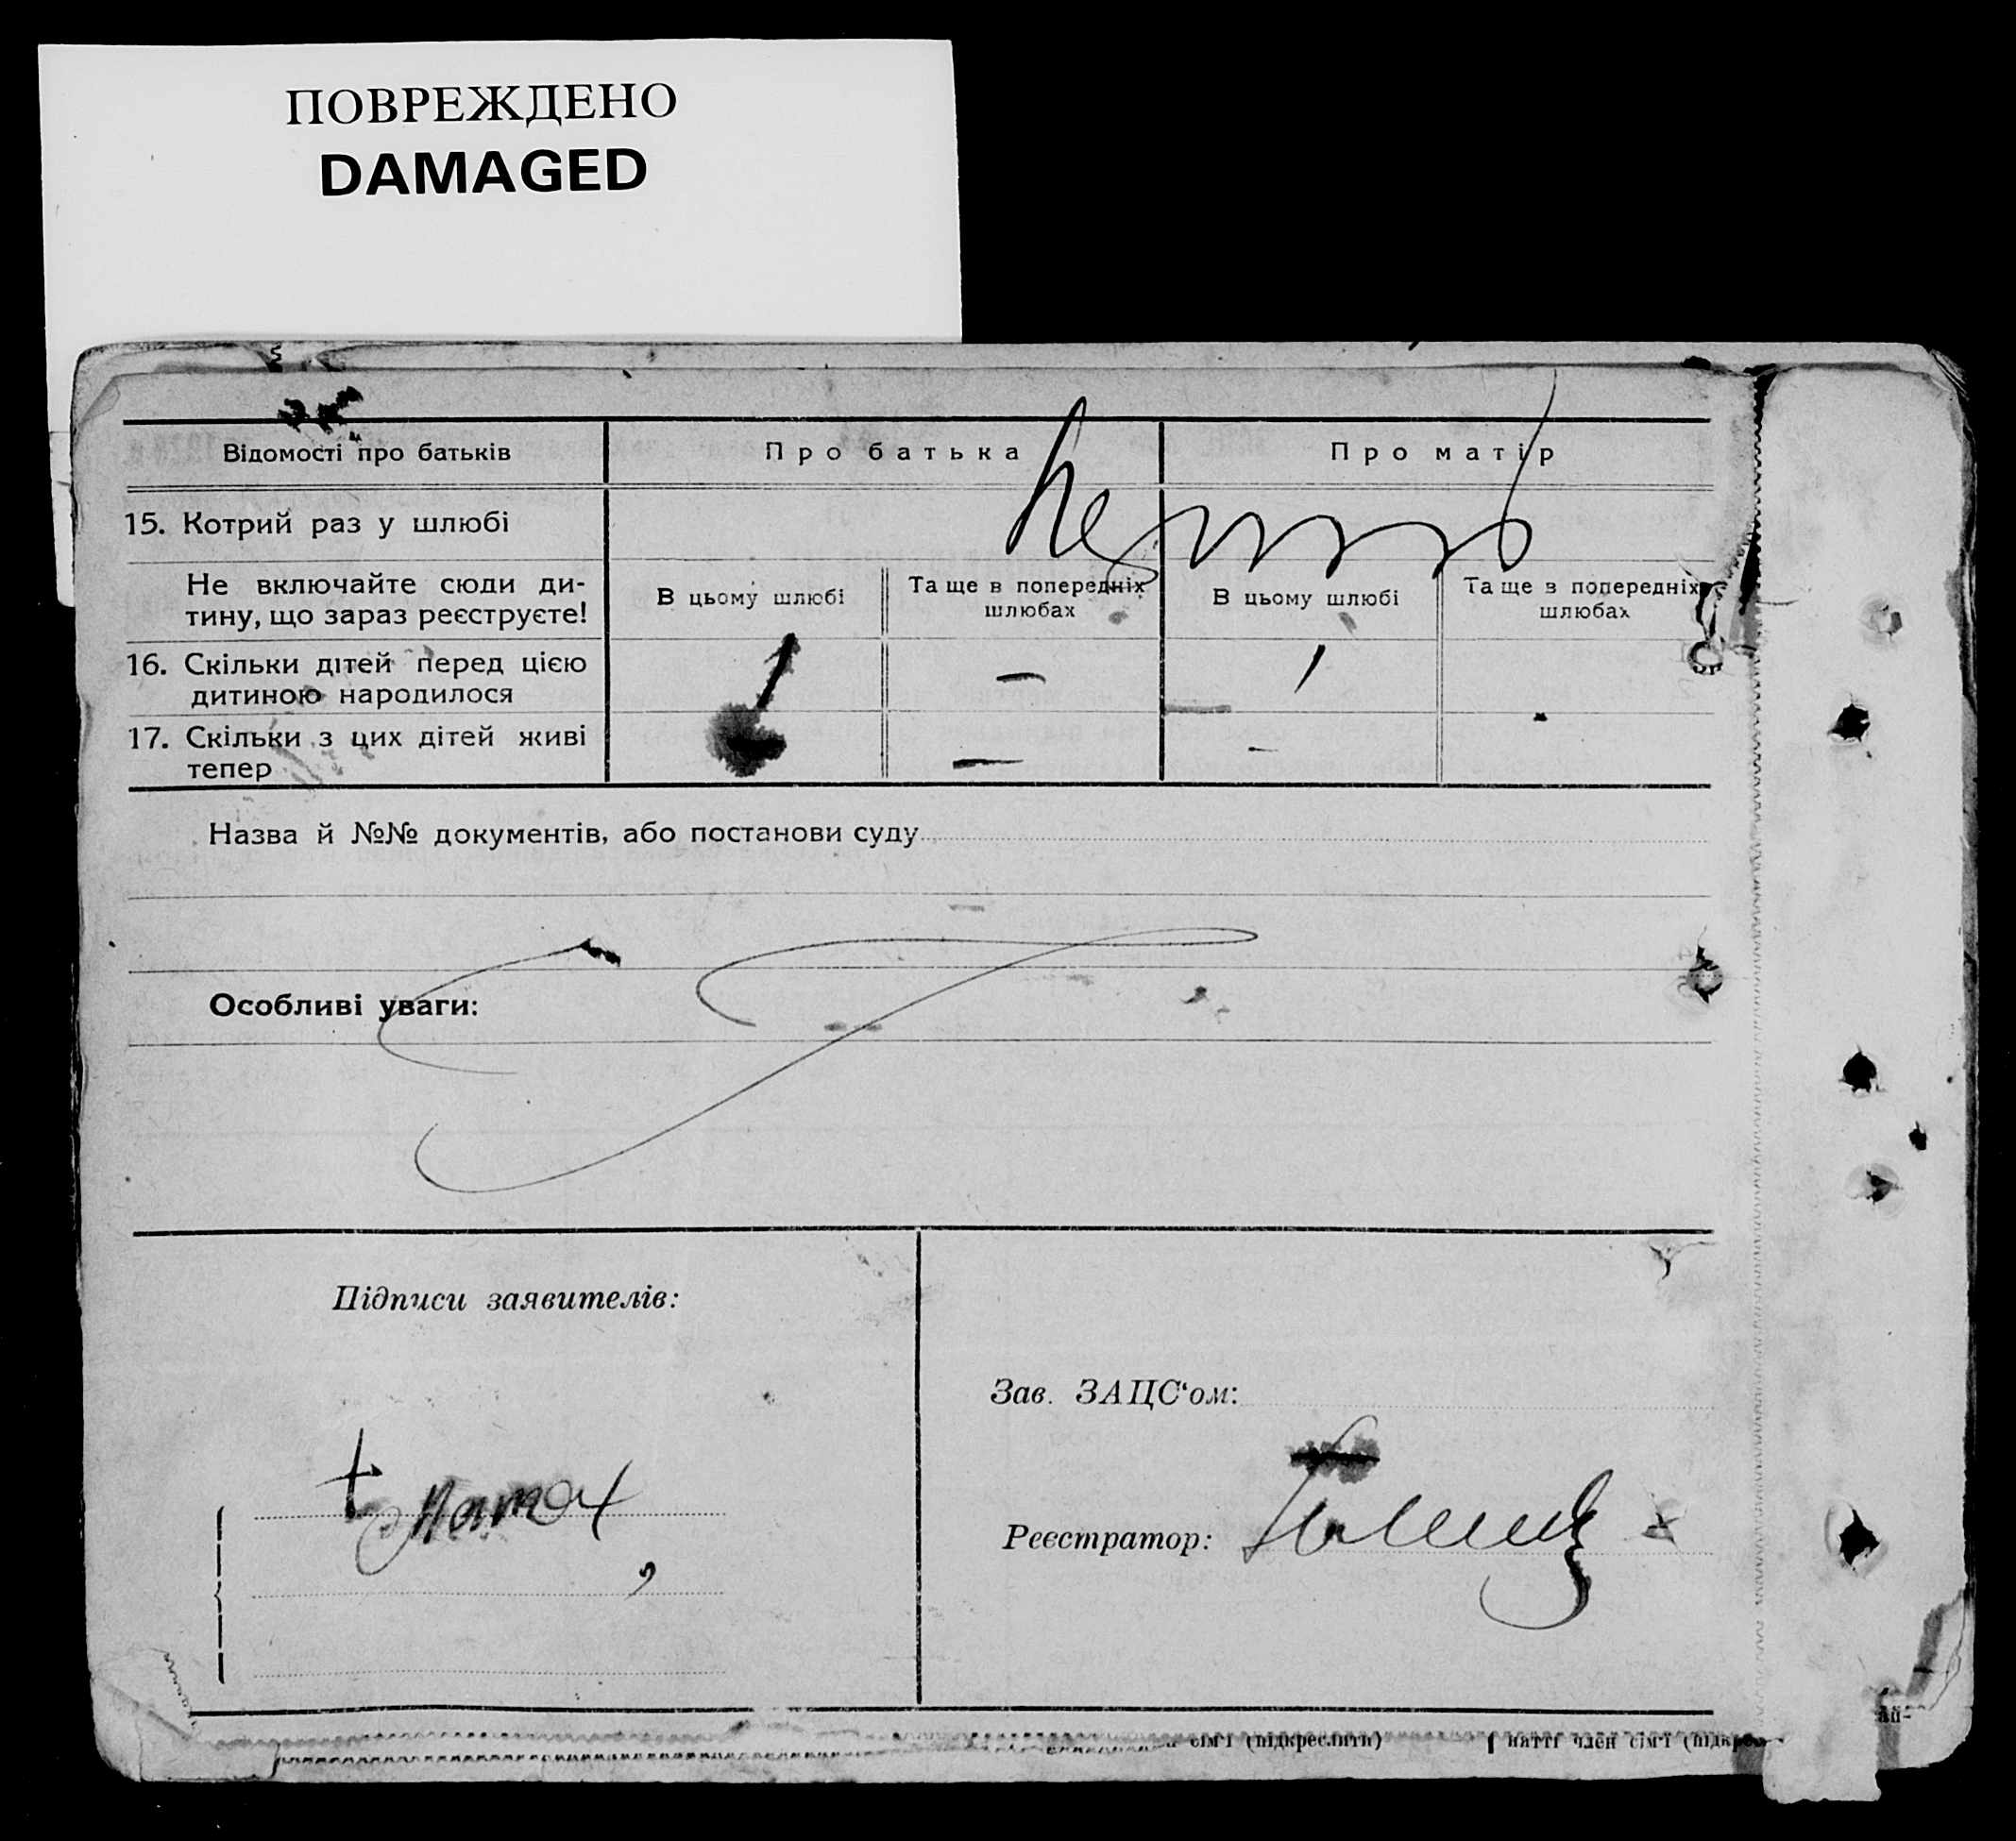 ПОВРЕЖДЕНО
DAMAGED
Відомості про батьків
Про батька
Про матір
15. Котрий раз у шлюбі
Не включайте сюди ди-
тину, що зараз реєструєте!
В цьому шлюбі
Та ще в попередніх
шлюбах
В цьому шлюбі
Та ще в попередніх
шлюбах
16. Скільки дітей перед цією
дитиною народилося
1
—
1
17. Скільки з цих дітей живі
тепер
—
-
Назва й №№ документів, або постанови суду
Особливі уваги:
Підписи заявителів:
Зав. ЗАЦС‘ом:
Реєстратор:
сім'ї (підкреслити)
член сім'ї